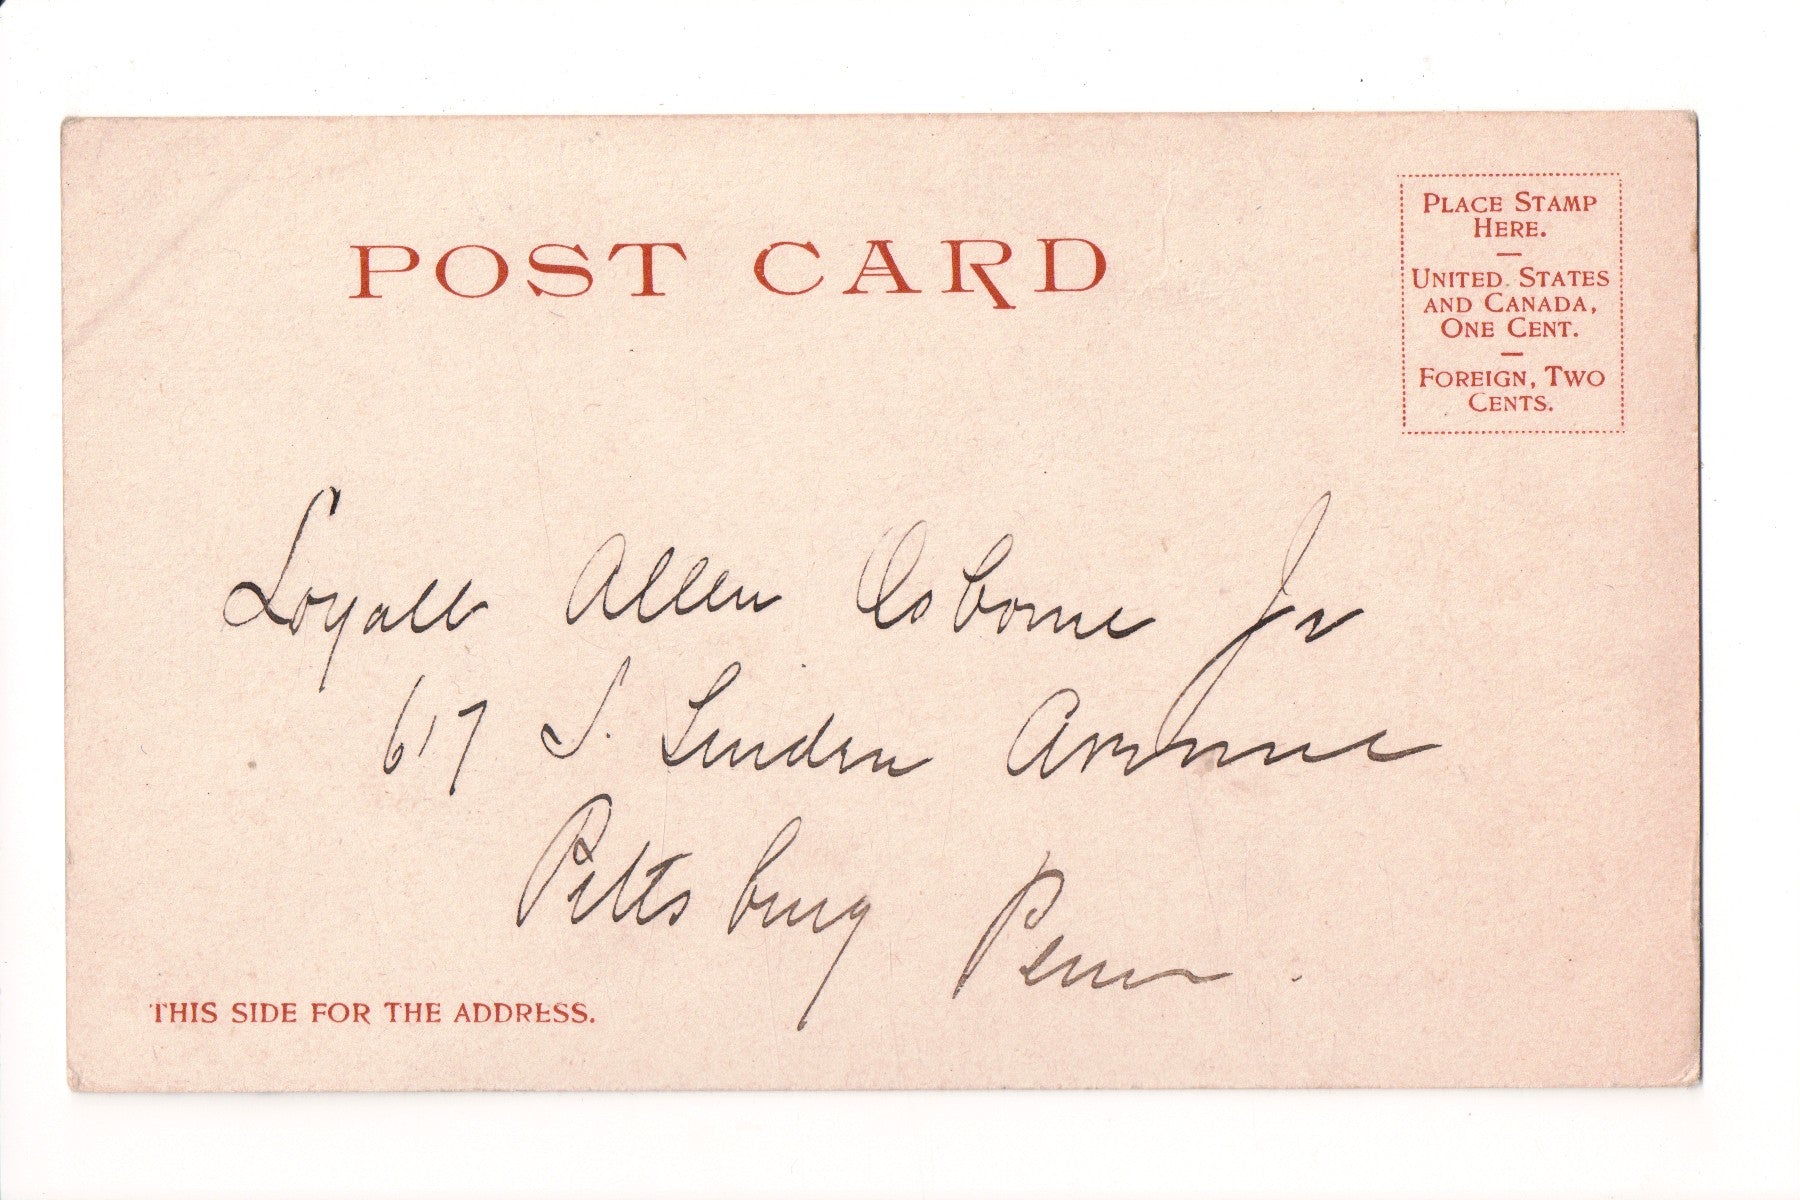 POST CARD
PLACE STAMP
HERE.
UNITED STATES
AND CANADA,
ONE CENT.
FOREIGN, TWO
CENTS.
Loyall Allen Osborne Jr
617 S. Linden Avenue
Pittsburg Penn.
THIS SIDE FOR THE ADDRESS.